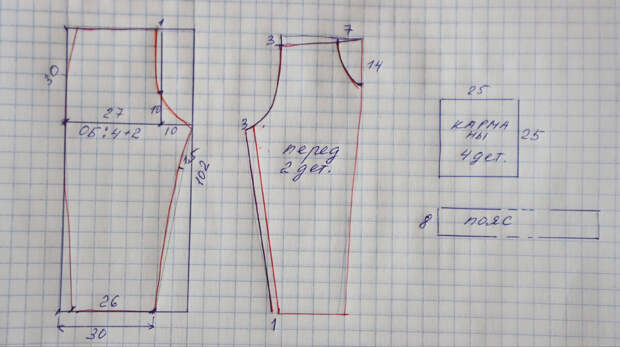 1
30
27
ОБ:4+2
10
10
1,5
102
26
30
3
7
14
3
перед
2 дет.
1
25
КАРМА
НЫ
4 дет.
25
8
ПОЯС